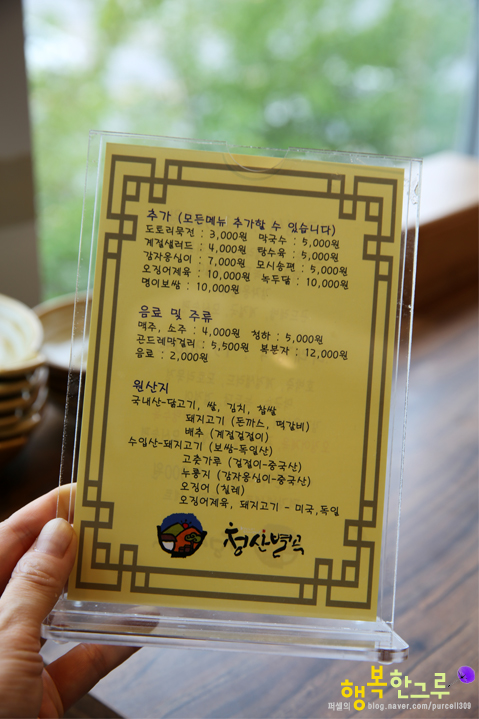 추가 (모든메뉴 추가할 수 있습니다)
도토리묵전 : 3,000원 막국수 : 5,000원
계절샐러드 : 4,000원 탕수육 : 5,000원
감자옹심이 : 7,000원 모시송편 : 5,000원
오징어제육 : 10,000원 녹두닭 : 10,000원
명이보쌈 : 10,000원
음료 및 주류
맥주, 소주 : 4,000원 청하 : 5,000원
곤드레막걸리 : 5,500원 복분자 : 12,000원
음료 : 2,000원
원산지
국내산-닭고기, 쌀, 김치, 찹쌀
돼지고기 (돈까스, 떡갈비)
배추 (계절겉절이)
수입산-돼지고기 (보쌈-독일산)
고춧가루 (겉절이-중국산)
누룽지 (감자옹심이-중국산)
오징어 (칠레)
오징어제육, 돼지고기 - 미국,독일
청산별곡
행복한그루
퍼셀의 blog.naver.com/purcell309